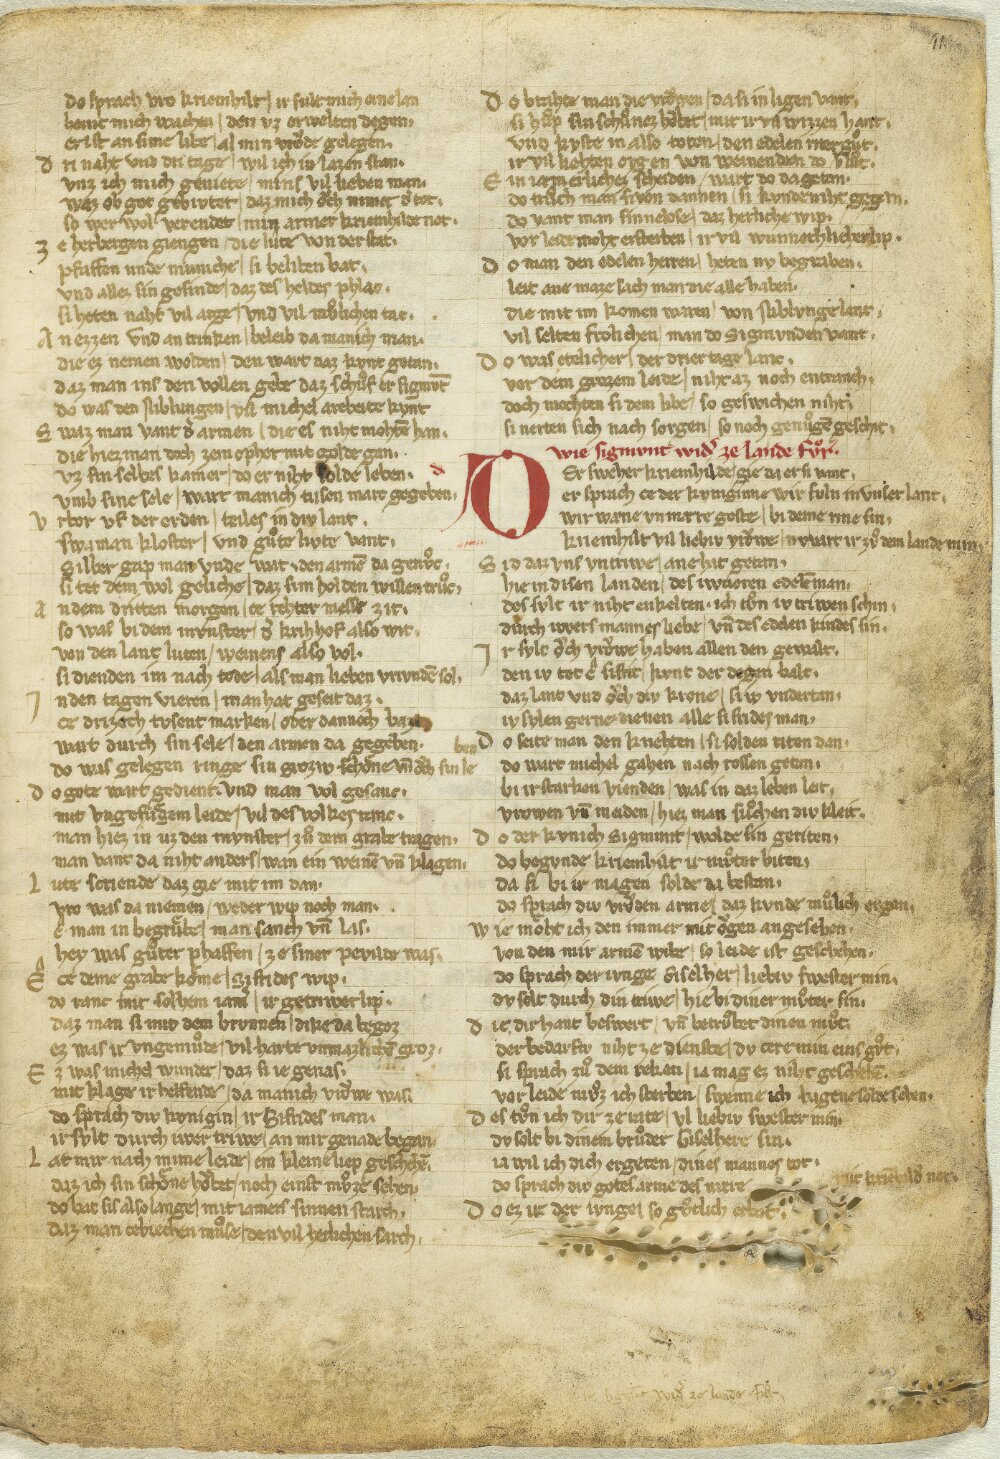 41
do sprach vro kriemhilt / ir sult mich eine lan
hinıt mich wachen / den vz erwelten degen.
er ist an sime libe / al min vrode gelegen.
D ri naht vnd dri tage / wil ich in lazen stan.
vnz ich mich geniete / mins vil lieben man.
waz ob got gebivtet / daz mich och nimet d tot.
so wer wol verendet / min armer kriemhilde not.
Z e herbergen giengen / die lute von der stat.
pfaffen vnde muniche / si beliben bat.
vnd alles sin gesinde / daz des heldes phlac.
si heten naht vil arge / vnd vil mvlichen tac.
A n ezzen vnd an trinken / beleib da manich man.
die ez nemen wolden / den wart daz kvnt getan.
daz man ins den vollen gebe daz schuf er sigmvt
do was den Niblungen / vil michel arebeite kvnt
S waz man vant d armen / die es niht mohte han.
die hiez man doch zem opher mit golde gan.
vz sin selbes kamer / do er niht solde leben.
vmb sine sele / wart manich tusen marc gegeben.
V rbor vf der erden / teiles in div lant.
swa man kloster / vnd gute livte vant.
Silber gap man vnde wat / den armē da genvc.
si tet dem wol geliche / daz sim holden willen truc.
A n dem dritten morgen / ce rehter messe zit.
so was bi dem mvnster / d kirihhof also wit.
von den lant luten / weinens also vol.
si dienden im nach tode / als man lieben vrivnde sol.
I n den tagen vieren / man hat geseit daz.
ce drizoch tvsent marken / oder dannoch baz.
wart durch sin sele / den armen da gegeben.
do was gelegen ringe sin groziv schone vn och sin le
ben
D o gote wart gedienet / vnd man vol gesanc.
mit vngefugem leide / vil des volkes ranc.
man hiez in uz dem mvnster / zu dem grabe tragen.
man vant da niht anders / wan ein weinē vn klagen.
L ute scriende daz gie mit im dan.
vro was da niemen / weder wip noch man.
e man in begrube / man sanch vn las.
hey was guter phaffen / ze siner pevilde was.
E ce deme grabe kome / Sifrides wip.
do ranc mit solhem iam / ir getriwer lip.
daz man si mit dem brvnnen / dike da begoz
ez was ir vngemude / vil harte vnmazlichē groz.
E z was michel wunder / daz si ie genas.
mit klage ir helfende / da manich vrowe was.
do sprach div konigin / ir Sifrides man.
ir svlt durch iwer triwe / an mir genade began
L at mir nach mime leide / ein kleine liep geschehē.
daz ich sin schone hobet / noch einst mvze sehen.
do bat sis also lange / mit iamers sinnen starch.
daz man cebrechen muse / den vil herlichen sarch.
D o brahte man die vrowen / da si in ligen vant.
si hup sin schonez hobet / mit ir vil wizzen hant.
vnd kuste in also toten / den edelen ritter gut.
ir vil liehten ovgen von weinenden do blut.
E in iamerlichez scheiden / wart do da getan.
do truch man si von dannen / si kvnde niht gegen.
do vant man sinnelose / daz herliche wip.
vor leide moht ersterben / ir vil wunnechlicher lip.
D o man den edelen herren / heten nv begraben.
leit ane maze sach man die alle haben.
die mit im komen waren / von Niblvnge lant.
vil selten frolichen / man do Sigmvnden vant.
D o was etelicher / der drier tage lanc.
vor dem grozem leide / niht az noch entranch.
doch mochten si dem libe / so geswichen niht.
si nerten sich nach sorgen / so noch genuge geschit.
wie sigmvnt wid ze lande fvr.
D Er sweher kriemhilde / gie da er si vant.
er sprach ce der kvniginne wir svln in vnser lant.
wir wane vnmere geste / bi deme rine sin.
kriemhilt vil liebiv vrowe / nv vart ir zv dem lande min.
S id daz vns vntriwe / ane hat getan.
hie in disen landen / des iwæren edelē man.
des svlt ir niht enkelten / ich ton iv triwen schin.
durch ivers mannes liebe / vn des edelen kindes sin.
I r svlt och vrowe haben allen den gewalt.
den iv tet e Sifrit / kvnt der degen balt.
daz lant vnd och div krone / si iv vndertan.
iv svlen gerne dienen alle Sifrides man.
D o seite man den knehten / si solden riten dan.
do wart michel gahen nach rossen getan.
bi ir starken vienden / was in daz leben leit.
vrowen vn meiden / hiez man suchen div kleit.
D o der kvnich Sigmunt / wolde sin geriten.
do begvnde kriemhilt ir muter biten.
da si bi ir magen solde da bestan.
do sprach div vroden arme / daz kvnde mulich ergan.
W ie moht ich den immer mit ogen angesehen.
von den mir armē wibe / so leide ist geschehen.
do sprach der ivnge Giselher / liebiv swester min.
dv solt durch din triwe / hie bi diner muter sin.
D ie dir hant beswert / vn betrubet dinen mut.
der bedarftv niht ze dienste / dv cere min eins gut.
si sprach zu dem reken / ia mag ez niht geschehē.
vor leide muz ich sterben / swenne ich hagene solde sehen.
D es ton ich dir ze rate / vil liebiv swester min.
dv solt bi dinem bruder Giselhere sin.
ia wil ich dich ergeten / dines mannes tot.
do sprach div gotes arme des were
mir kriēhilde not.
D o ez ir der ivnge / so gutlich erbot.
wid ze lande fvr